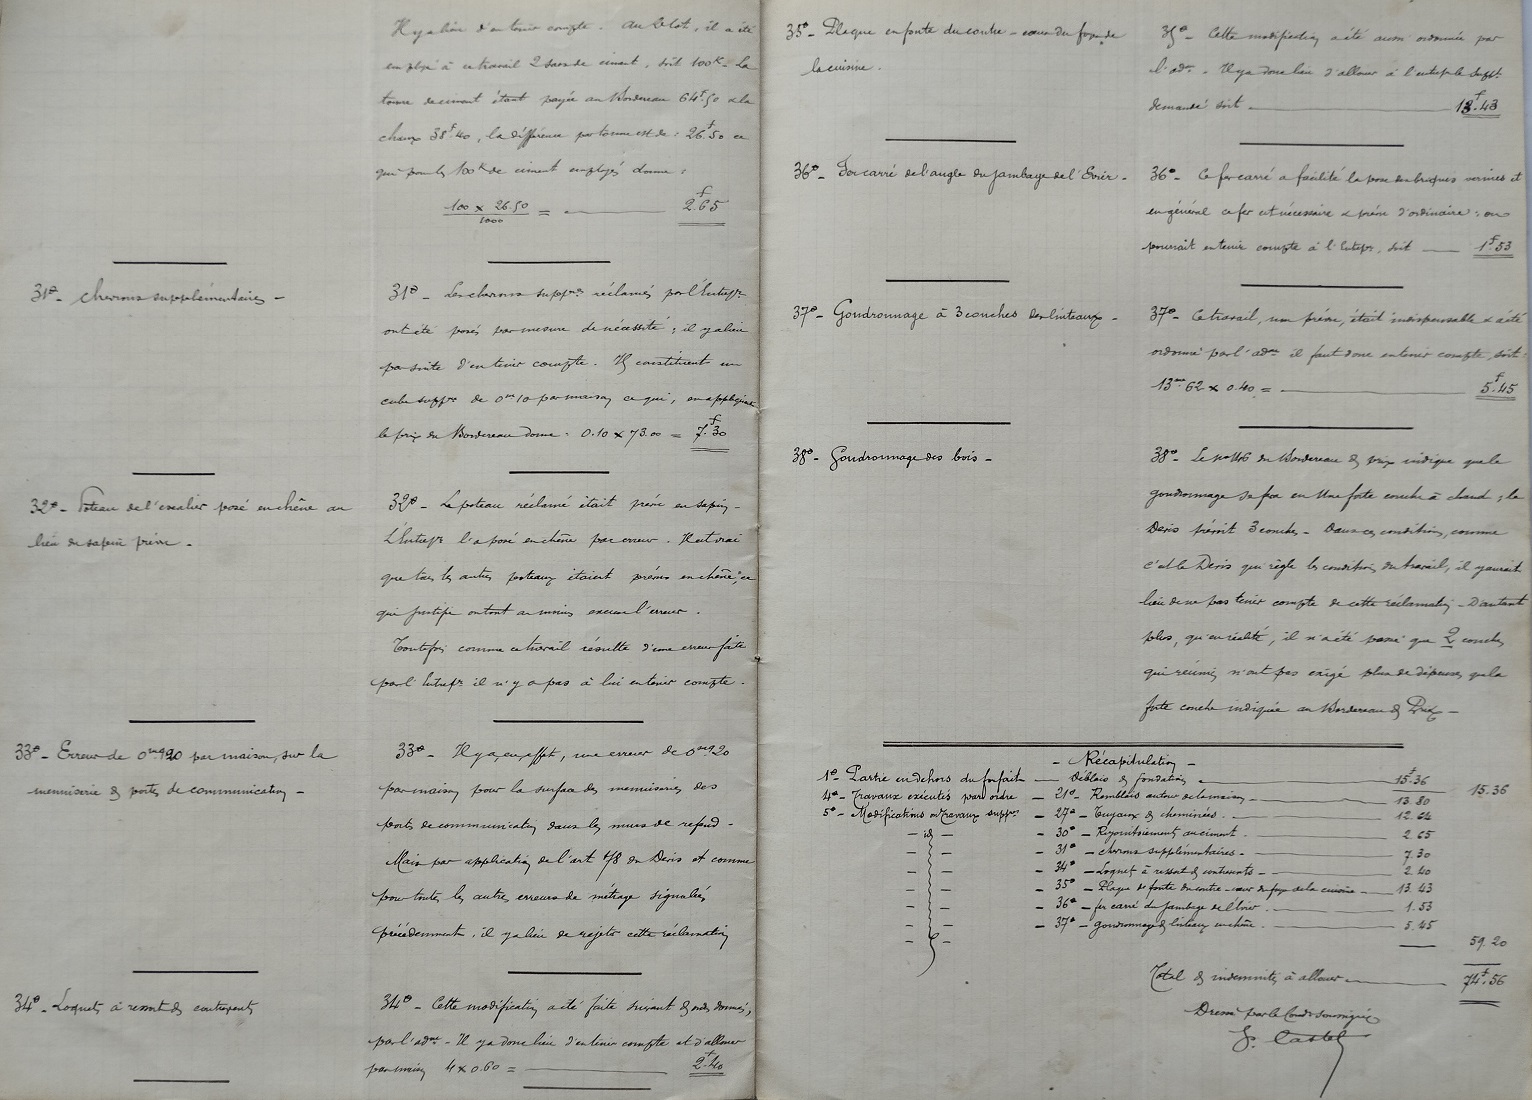 Il y a lieu d'en tenir compte. Au lot, il a été
employé à ce travail 2 sacs de ciment, soit 100k. La
tonne de ciment étant payée au Bordereau 64f.90 & la
chaux 38f.40, la différence par tonne est de : 26f.50 ce
qui pour les 100k de ciment employés donne :
100 x 26.50 / 1000 = 2f.65
31° - Chevrons supplémentaires -
31° - Les chevrons suppres réclamés par l'Entrepr
ont été posés par mesure de nécessité ; il y a lieu
par suite d'en tenir compte. Ils constituent un
cube suppre de 0m10 par maison ce qui, en appliquant
le prix du Bordereau donne : 0.10 x 73.00 = 7f.30
32° - Poteau de l'escalier posé en chêne au
lieu de sapin prévu -
32° - Le poteau réclamé était prévu en sapin -
L'Entrepr l'a posé en chêne par erreur. Il est vrai
que tous les autres poteaux étaient prévus en chêne, ce
qui justifie ou tout au moins excuse l'erreur.
Toutefois comme ce travail résulte d'une erreur faite
par l'Entrepr il n'y a pas à lui en tenir compte -
33° - Erreur de 0mq20 par maison, sur la
menuiserie des portes de communication -
33° - Il y a, en effet, une erreur de 0mq20
par maison pour la surface des menuiseries des
portes de communication dans les murs de refend -
Mais par application de l'art 1/8 du Devis et comme
pour toutes les autres erreurs de métrage signalées
précédemment, il y a lieu de rejeter cette réclamation
34° - Loquets à ressort des contrevents
34° - Cette modification a été faite suivant des ordres donnés,
par l'adon - Il y a donc lieu d'en tenir compte et d'allouer
par maison 4 x 0.60 = 2f.40
35° - Plaque en fonte du contre-cœur du foyer de
la cuisine.
35° - Cette modification a été aussi ordonnée par
l'adon. Il y a donc lieu d'allouer à l'entrepr le suppt
demandé soit 13f.43
36° - Fer carré de l'angle du jambage de l'Evier -
36° - Ce fer carré a facilité la pose des briques vernies et
en général ce fer est nécessaire & prévu d'ordinaire : on
pourrait en tenir compte à l'Entepr, soit 1f.53
37° - Goudronnage à 3 couches des linteaux -
37° - Ce travail, non prévu, était indispensable & a été
ordonné par l'adon il faut donc en tenir compte, soit :
13m62 x 0.40 = 5f.45
38° - Goudronnage des bois -
38° - Le n° 146 du Bordereau des prix indique que le
goudronnage se fera en une forte couche à chaud ; le
Devis prévoit 3 couches - Dans ces conditions, comme
c'est le Devis qui règle les conditions du travail, il y aurait
lieu de ne pas tenir compte de cette réclamation - D'autant
plus, qu'en réalité, il n'a été passé que 2 couches
qui réunies n'ont pas exigé plus de dépenses que la
forte couche indiquée au Bordereau des Prix -
- Récapitulation -
1° - Partie en dehors du forfait - Déblais des fondations 15f.36 15.36
4° - Travaux exécutés par ordre - 21° - Remblais autour de la maison 13.80
5° - Modifications ou Travaux suppres - 27° - Tuyaux des cheminées 12.64
- id - - 30° - Rejointoiement au ciment 2.65
- - 31° - Chevrons supplémentaires - 7.30
- - 34° - Loquet à ressort des contrevents 2.40
- - 35° - Plaque de fonte du contre-cœur du foyer de la cuisine 13.43
- - 36° - fer carré du jambage de l'évier 1.53
- - 37° - goudronnage des linteaux en chêne 5.45
59.20
Total des indemnités à allouer 74f.56
Dressé par le Condr soussigné
G. Castel